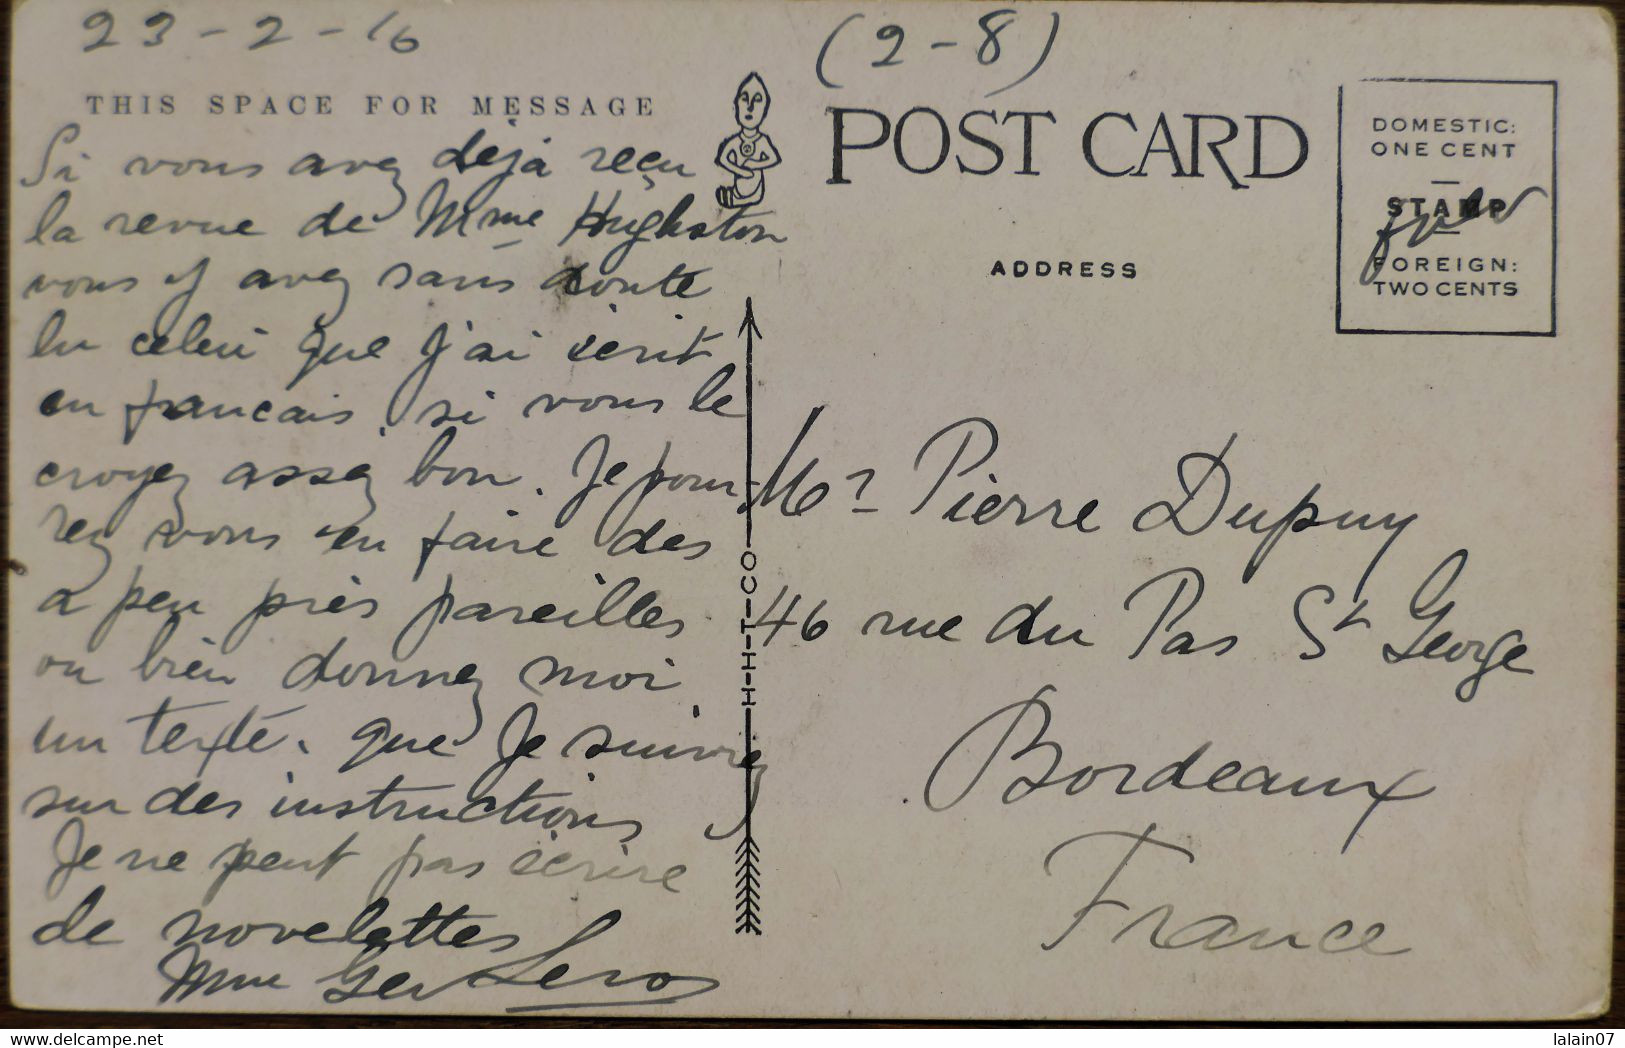 23-2-16
(2-8)
THIS SPACE FOR MESSAGE
Si vous avez déjà reçu
la revue de Mme Hughston
vous y avez sans doute
lu celui que j'ai écrit
en francais, si vous le
croyez assez bon. Je pour-
rez vous en faire des
a peu près pareilles
ou bien donnez moi
un texte. que Je suivrez
sur des instructions
Je ne peut pas écrire
de novelettes
Mme Ger Leros
H-H-T-CO
POST CARD
ADDRESS
DOMESTIC:
ONE CENT
STAMP
FOREIGN:
TWO CENTS
Mr Pierre Dupuy
46 rue du Pas St George
Bordeaux
France
lalain07